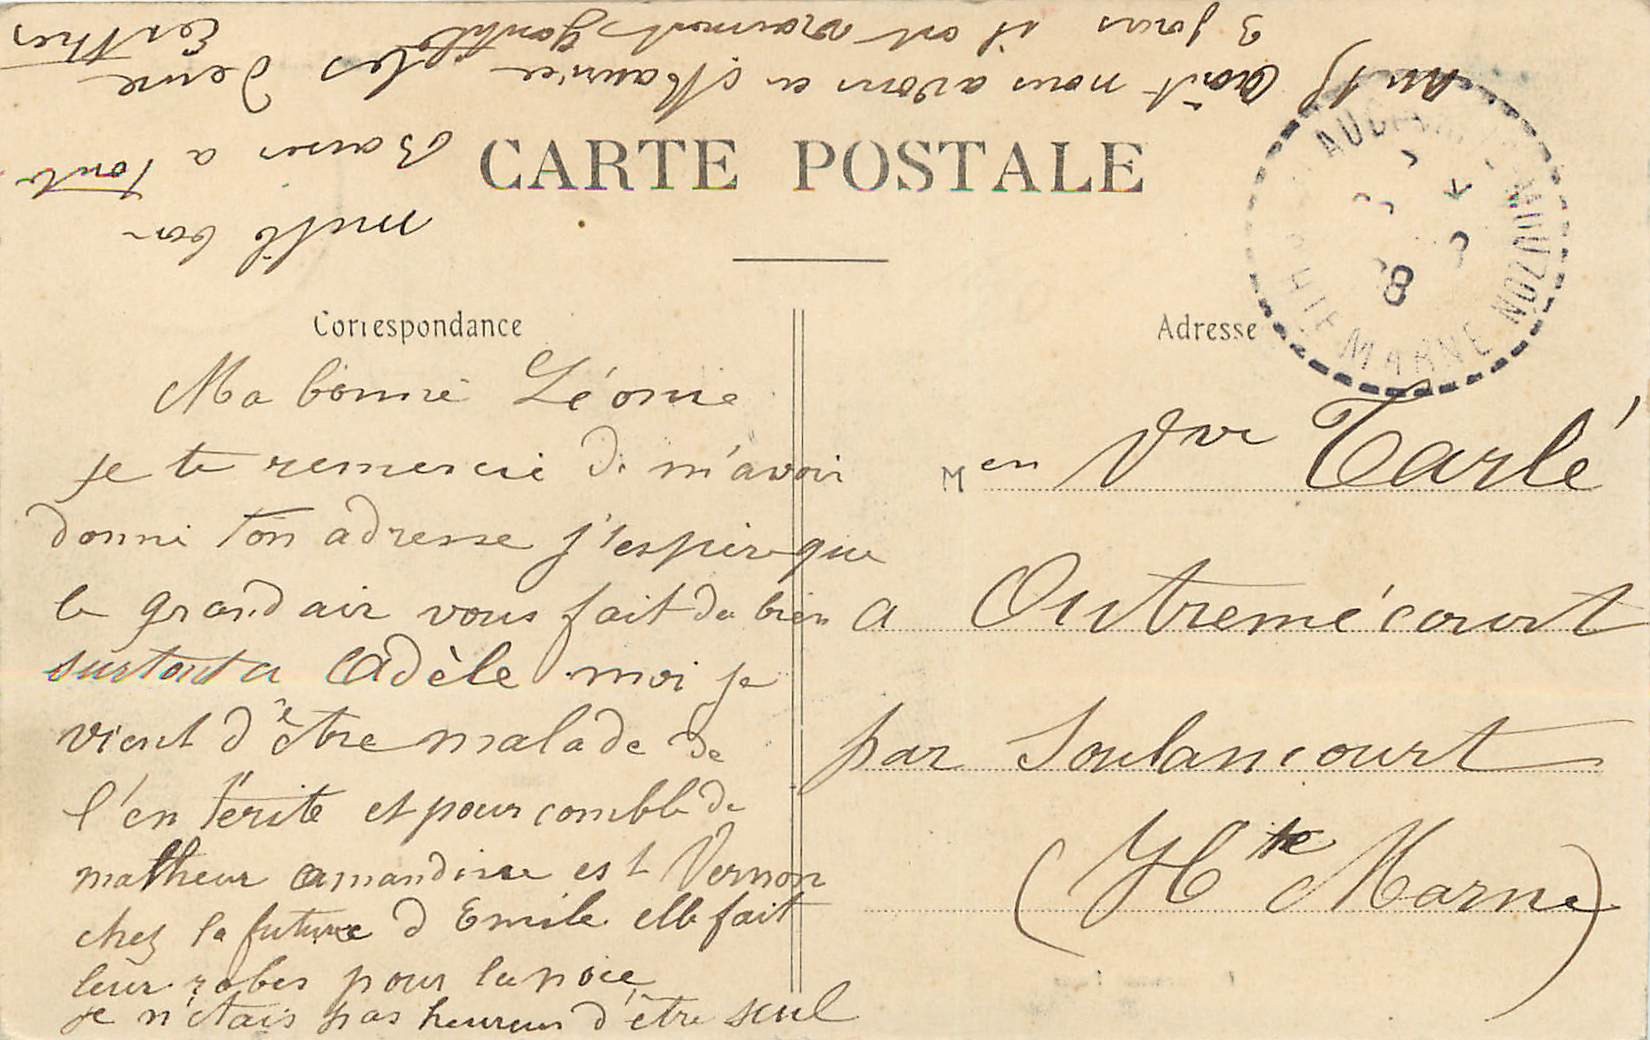 CARTE POSTALE
Correspondance
Ma bonne Léonie
je te remercie de m'avoir
donné ton adresse j'espère que
le grand air vous fait du bien
surtout a Adèle moi je
vient d'être malade de
l'en térite et pour comble de
malheur amandine est Vernon
chez la future d Emile elle fait
leur robes pour la noce
je n'étais pas heureux d'être seul
au 15 Août nous avons eu Maurice
3 jours il ont vraiment gentil
les deux Esther
mille bon
Baiser a toute
Adresse
M en Vve Tarlé
a Outremécourt
par Soulaucourt
(Hte Marne)
HTE MARNE